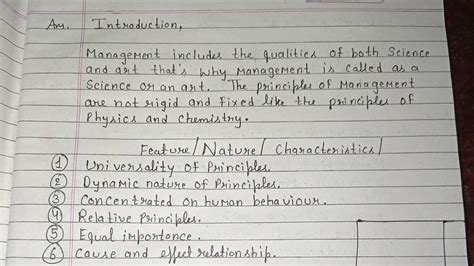 Ans. Introduction,
Management includes the qualities of both Science
and art that's why management is called as a
Science or an art. The principles of Management
are not rigid and fixed like the principles of
Physics and Chemistry.
Feature/Nature/Characteristics/
① Universality of Principles.
② Dynamic nature of Principles.
③ Concentrated on human behaviour.
④ Relative Principles.
⑤ Equal importance.
⑥ Cause and effect relationship.